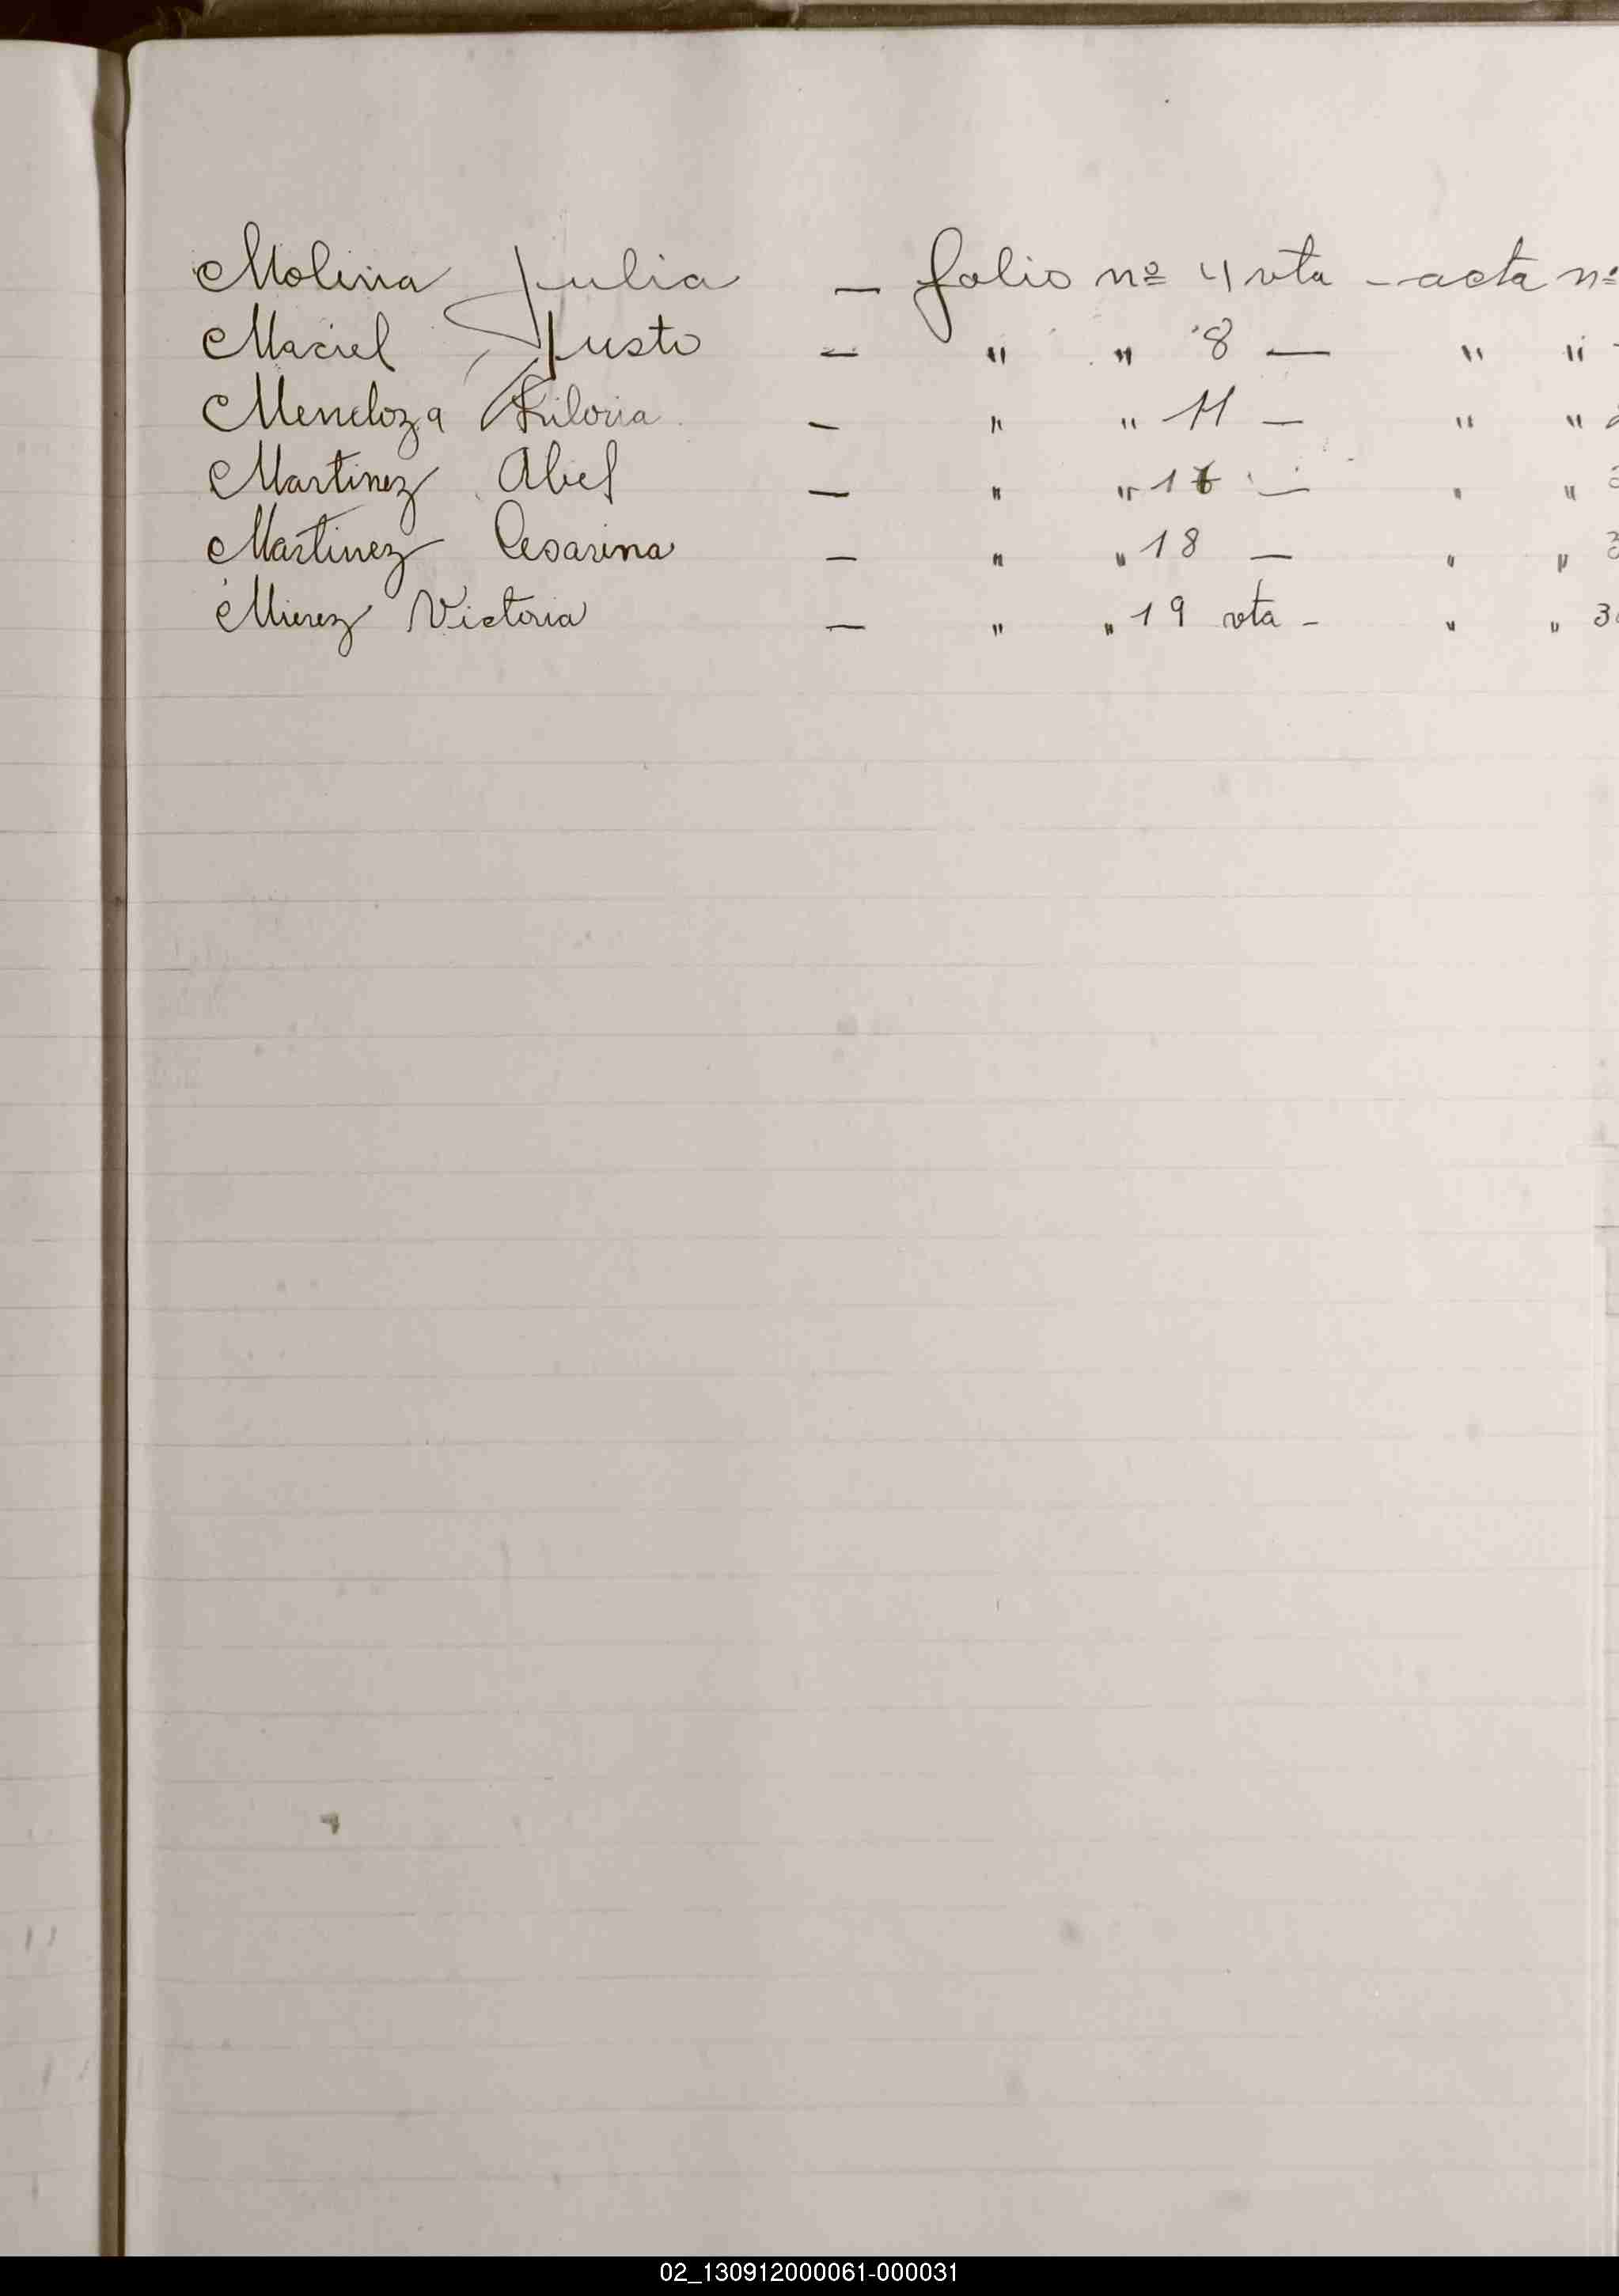 Molina Julia — folio nº 4 vta - acta nº
Maciel Justo — " " 8 — " "
Mendoza — " " 11 — " "
Martinez Abel — " " 16 — " "
Martinez Cesarina — " " 18 — " " 3
Mierez Victoria — " " 19 vta - " " 3
02_130912000061-000031